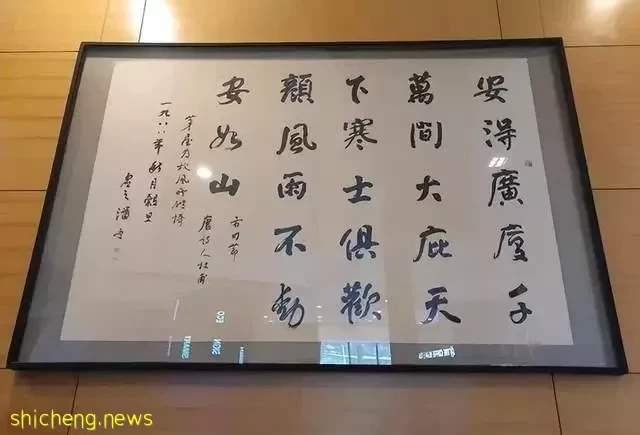 安得廣廈千
萬間大庇天
下寒士俱歡
顏風雨不動
安如山
唐詩人杜甫
茅屋為秋風所破詩
一九八八年秋月穀旦
shicheng.news